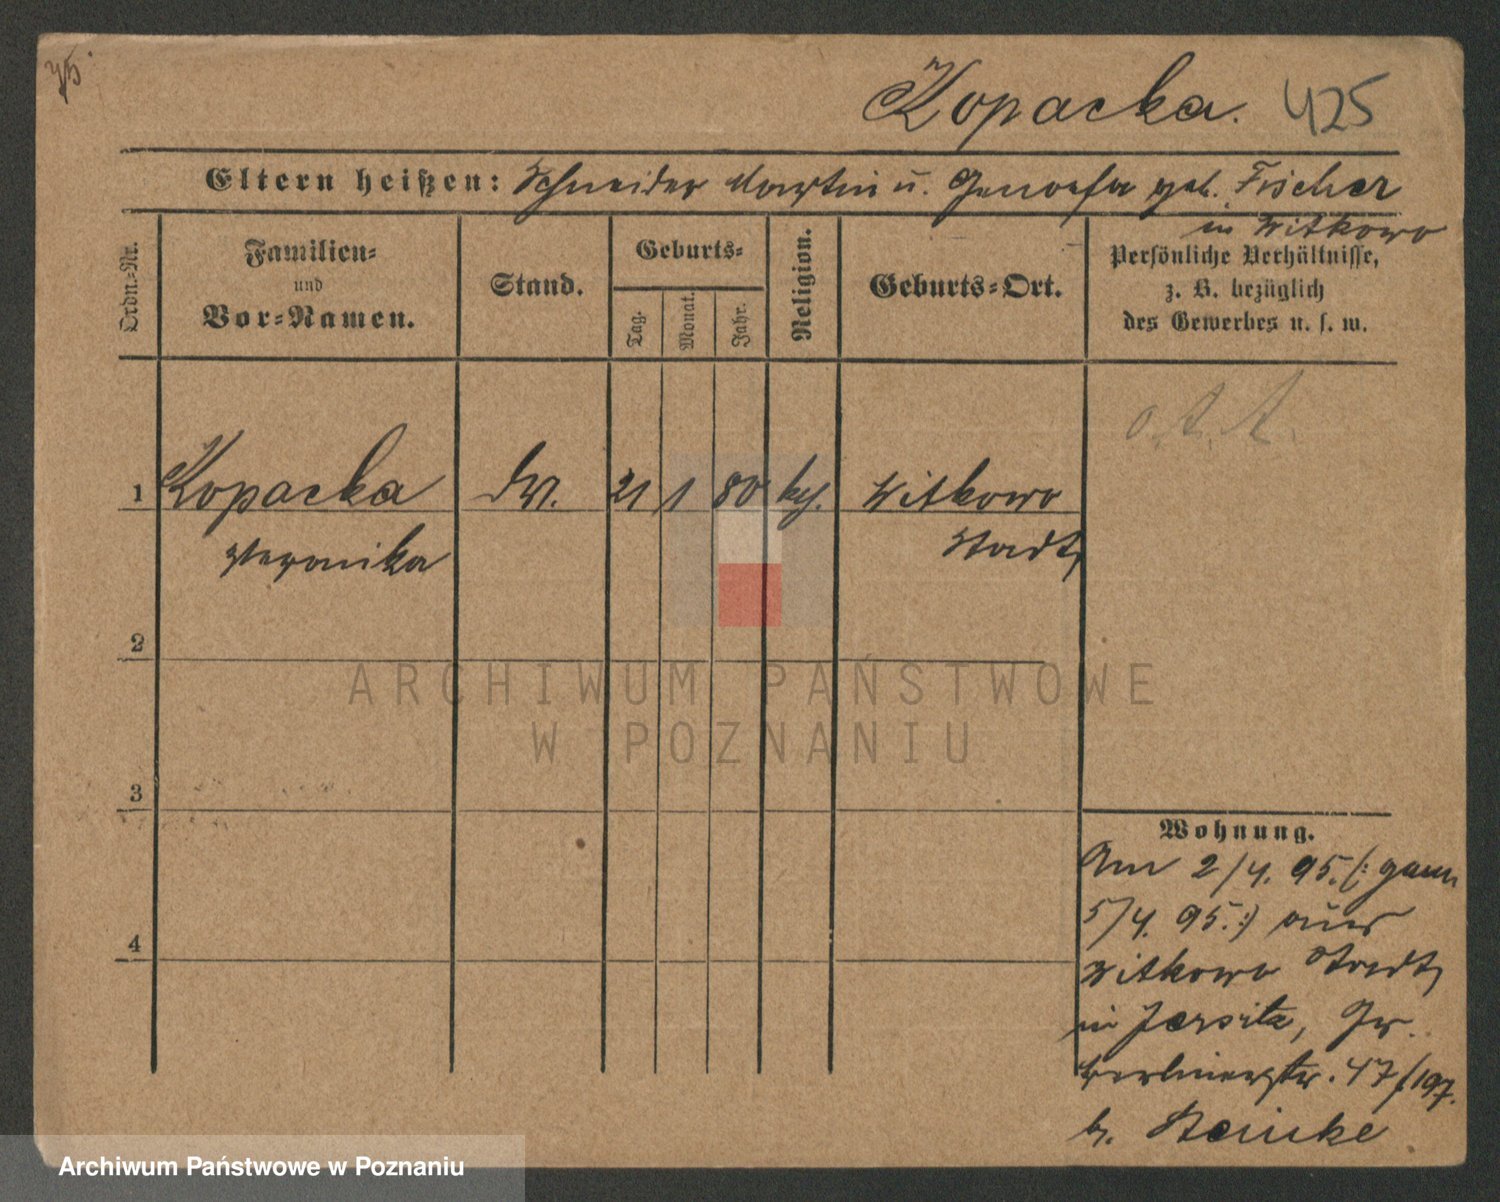 Kopacka. 425
Eltern heißen: Schneider Martin u. Genovefa geb. Fischer
in Witkowo
Ordn.-Nr.
Familien-
und
Vor-Namen.
Stand.
Geburts-
Tag.
Monat.
Jahr.
Religion.
Geburts-Ort.
Persönliche Verhältnisse,
z. B. bezüglich
des Gewerbes u. s. w.
1 Kopacka 21 1 80 kth. Witkowo
Veronika Stadt,
2
3
4
Wohnung.
Am 2/4. 95. (: gem
5/4. 95. :) aus
Witkowo Stadt,
in Jersitz, Gr.
Berlinerstr. 47/197.
b. Reinke
ARCHIWUM PAŃSTWOWE
W POZNANIU
Archiwum Państwowe w Poznaniu